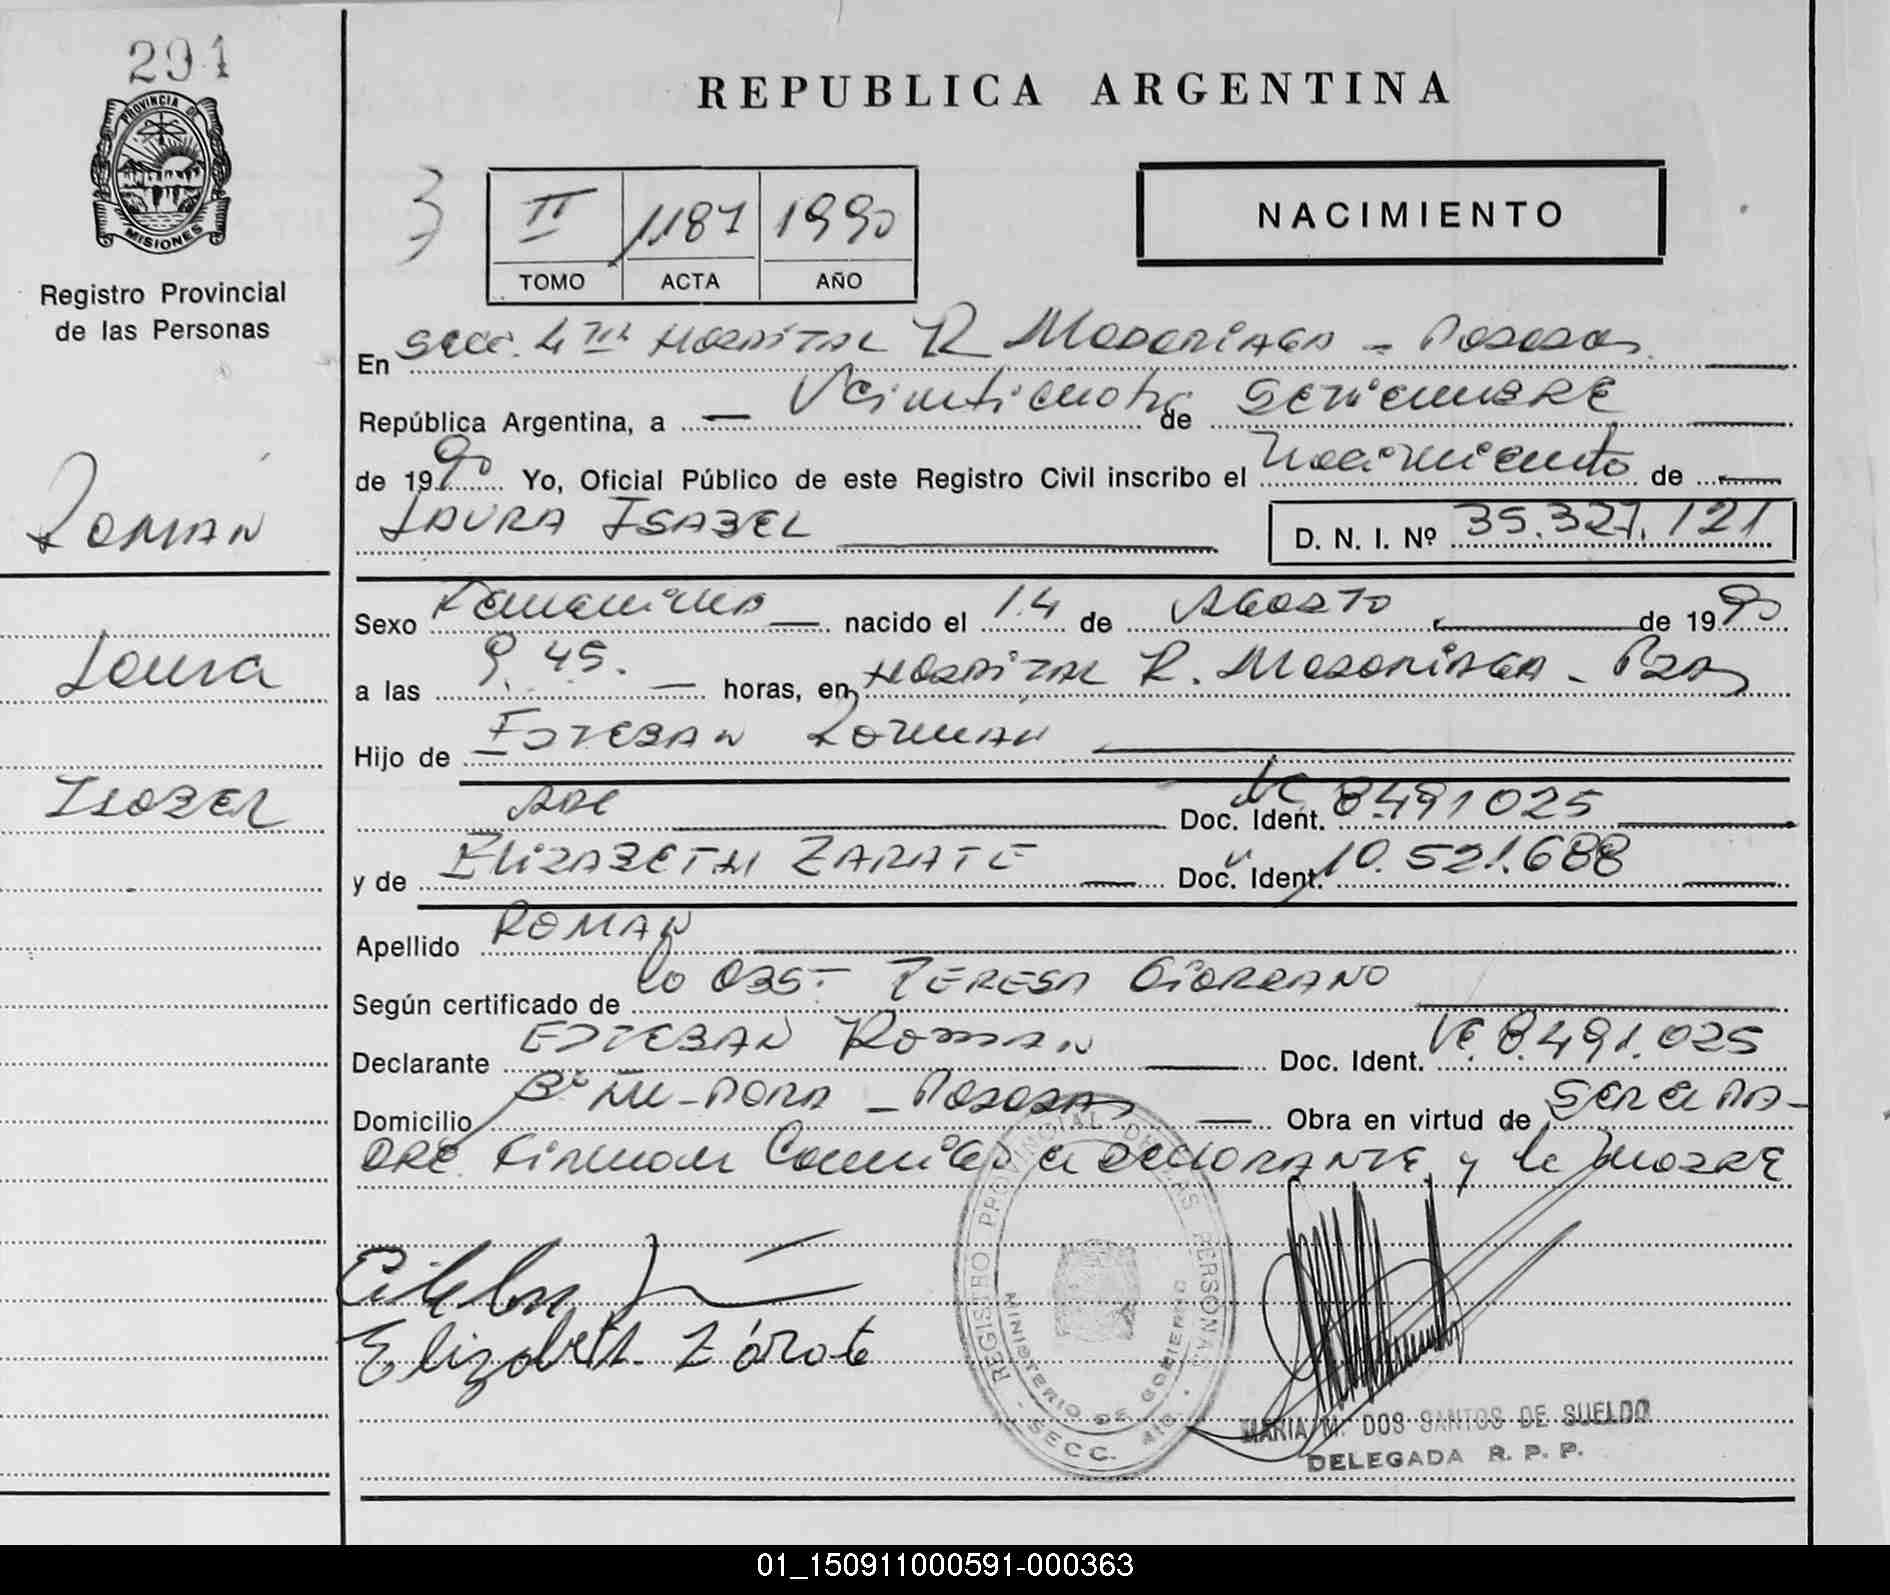 291
PROVINCIA DE
MISIONES
Registro Provincial
de las Personas
ROMAN
Laura
Isabel
REPUBLICA ARGENTINA
3
II 1187 1990
TOMO ACTA AÑO
NACIMIENTO
En Secc. 4ta Hospital R Madariaga - Posadas
República Argentina, a — Veinticuatro de Setiembre
de 1990 Yo, Oficial Público de este Registro Civil inscribo el Nacimiento de
LAURA ISABEL D. N. I. Nº 35.327.121
Sexo Femenino nacido el 14 de Agosto de 1990
a las 9.45. horas, en Hospital R. Madariaga - Pdas
Hijo de ESTEBAN ROMAN
Doc. Ident. 8491025
y de ELIZABETH ZARATE Doc. Ident. 10.521.688
Apellido ROMAN
Según certificado de la OBST TERESA GIORDANO
Declarante ESTEBAN ROMAN Doc. Ident. 8.491.025
Domicilio Posadas Obra en virtud de ser el PA-
DRE. Firman Conmigo el declarante y la madre
Elizabeth Zárate
REGISTRO PROVINCIAL DE LAS PERSONAS
MINISTERIO DE GOBIERNO
SECC.
MARIA M. DOS SANTOS DE SUELDO
DELEGADA R. P. P.
01_150911000591-000363